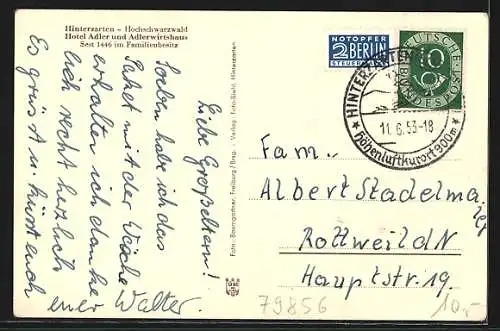 Hinterzarten – Hochschwarzwald
Hotel Adler und Adlerwirtshaus
Seit 1446 im Familienbesitz
Liebe Großeltern!
Soeben habe ich das
Paket mit der Wäsche
erhalten ich danke
euch recht herzlich
Es grüst u. küst euch
euer Walter.
Foto: Baumgartner, Freiburg/Brsg. - Verlag: Foto-Stehl, Hinterzarten
NOTOPFER
2 BERLIN
STEUERMARKE
DEUTSCHE
10
BUNDESPOST
HINTERZARTEN
11.6.53-18
Höhenluftkurort 900m
Fam.
Albert Stadelma
ier
Rottweil d N
Hauptstr. 19.
79856
10,-